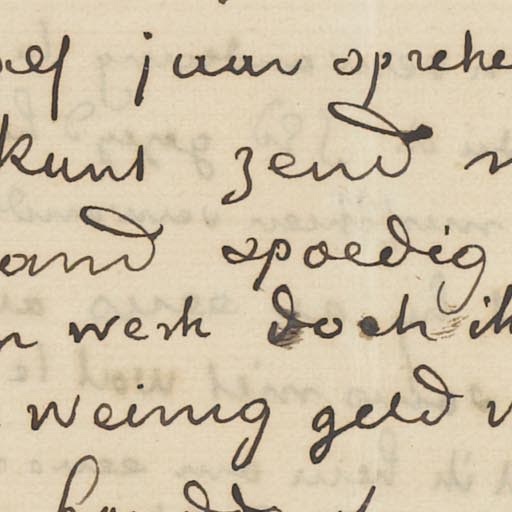 half jaar opreke
kunt zend
and spoedig
werk doch ik
weinig geld